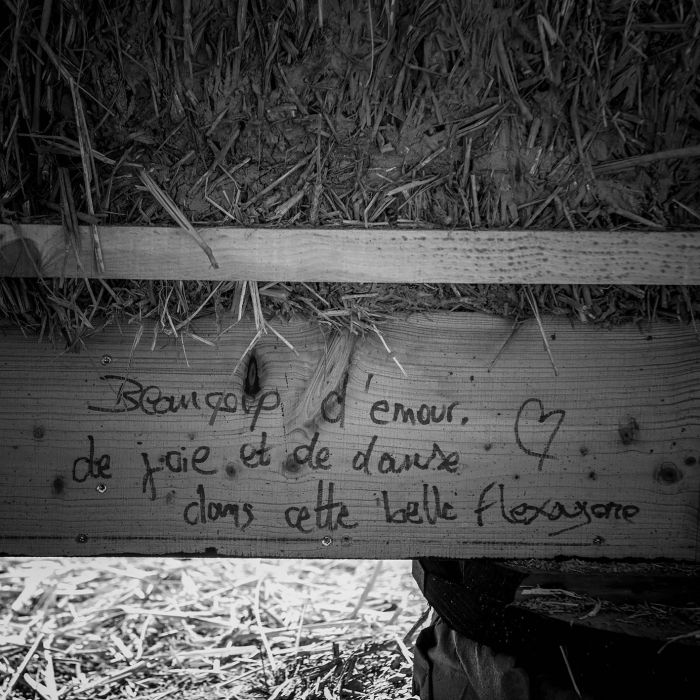 Beaucoup d'emour,
de joie et de danse
dans cette belle flexagone